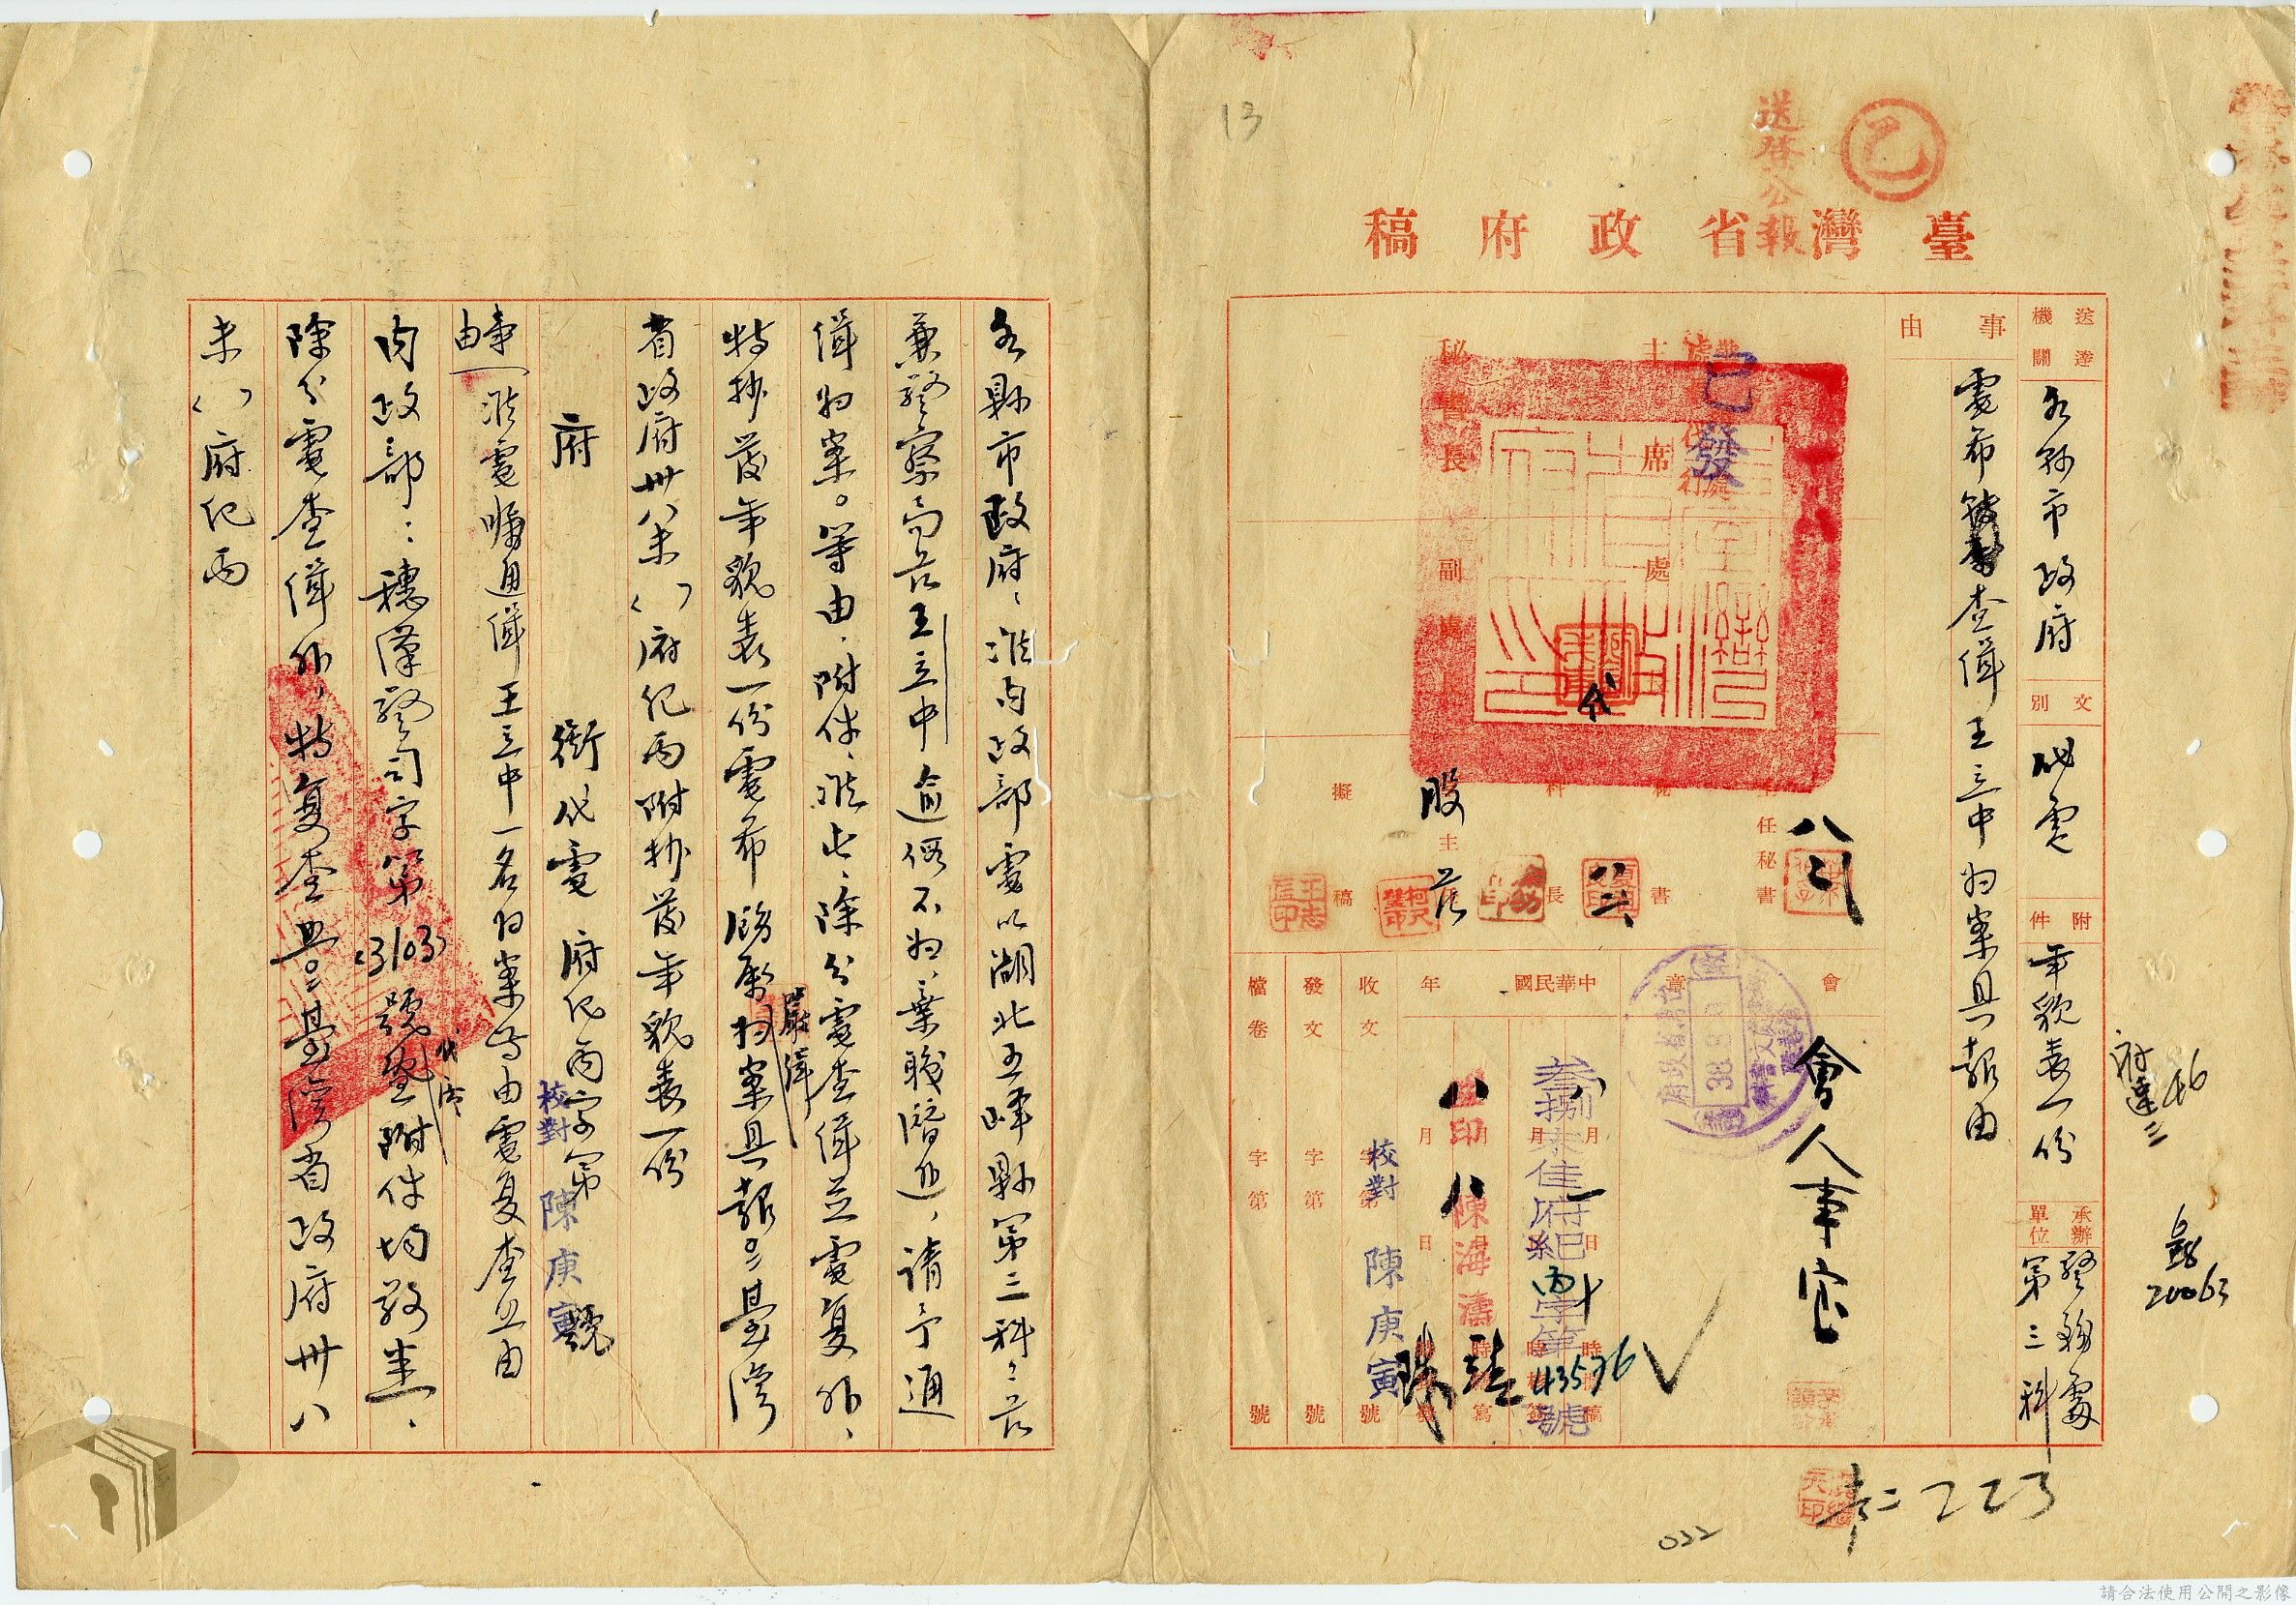 13
送登公報
乙
臺灣省政府稿
送達機關
各縣市政府
文別
代電
附件
年貌表一份
承辦單位
警務處第三科
事由
電希查緝王立中归案具報由
已發
主席
處
秘書長
副處長
代
主任秘書
秘書
科長
股主任
擬稿
會章
會人事室
中華民國
年
月
日
時
叁捌未佳府紀丙字第43536號
監印
陳海濤
校對
陳庚寅
收文
字第
號
發文
字第
號
檔卷
字第
號
20063
223
022
各縣市政府：准內政部電以湖北五峰縣第三科科長
兼警察局長王立中逾假不归，棄職潛逃，請予通
緝归案。等由，附件，准此，除分電查緝並電复外，
特抄發年貌表一份電希飭屬嚴緝归案具報。臺灣
省政府卅八未（ ）府纪丙附抄發年貌表一份
府 衔代電 府纪丙字第 號
校對 陳庚寅
事由：准電嘱通緝王立中一名归案等由電复查照由
內政部：穗漢警司字第3103號代電附件均敬悉，
除分電查緝外，特复查照。臺灣省政府卅八
未（ ）府纪丙
請合法使用公開之影像